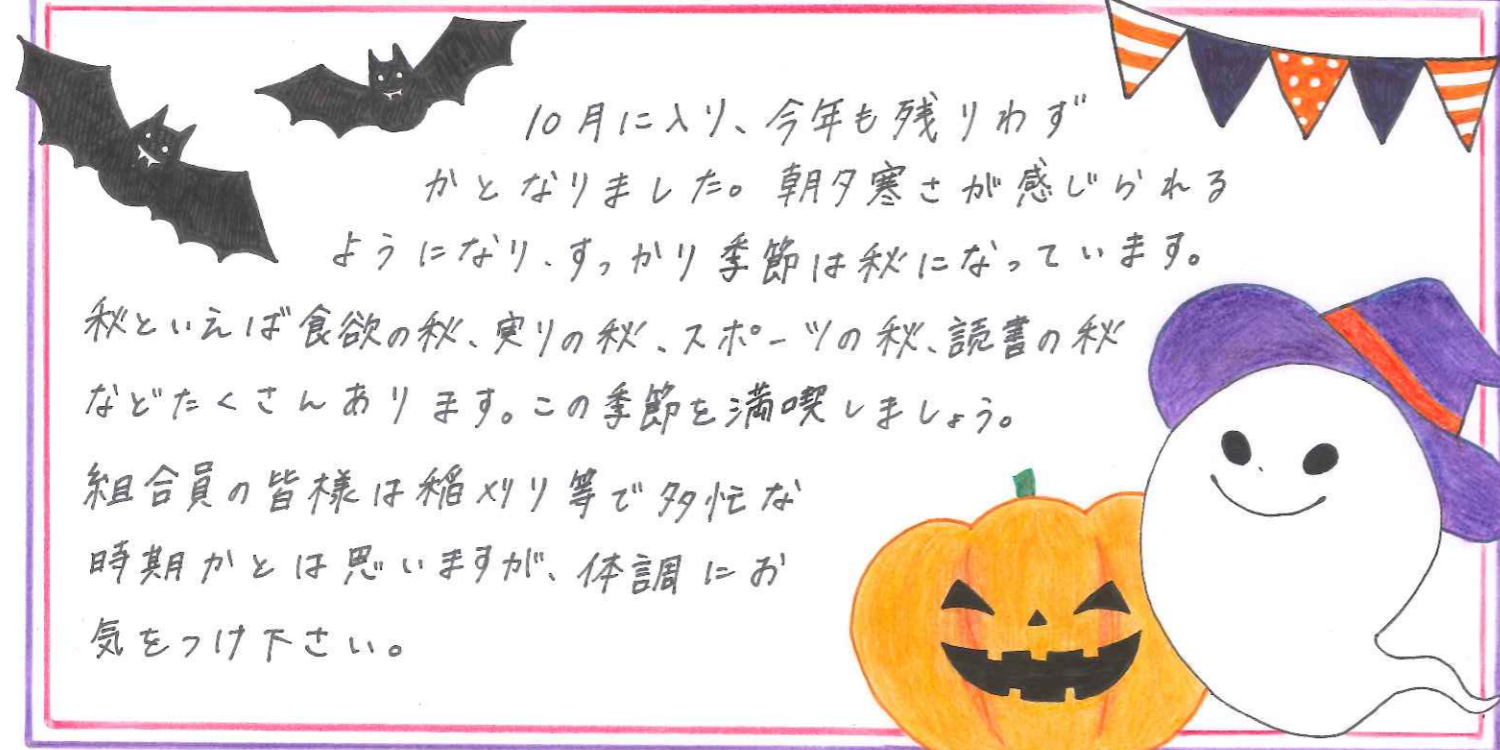 10月に入り、今年も残りわず
かとなりました。朝夕寒さが感じられる
ようになり、すっかり季節は秋になっています。
秋といえば食欲の秋、実りの秋、スポーツの秋、読書の秋
などたくさんあります。この季節を満喫しましょう。
組合員の皆様は稲刈り等で多忙な
時期かとは思いますが、体調にお
気をつけ下さい。